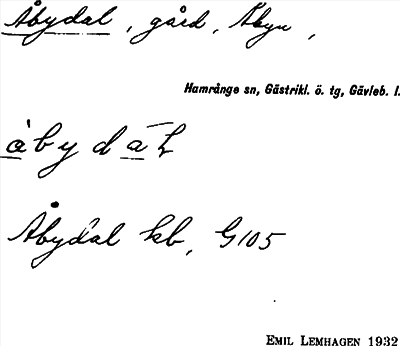 Åbydal, gård, Åbyn,
Hamrånge sn, Gästrikl. ö. tg, Gävleb. l.
åbydāl
Åbydal kb, G105
EMIL LEMHAGEN 1932